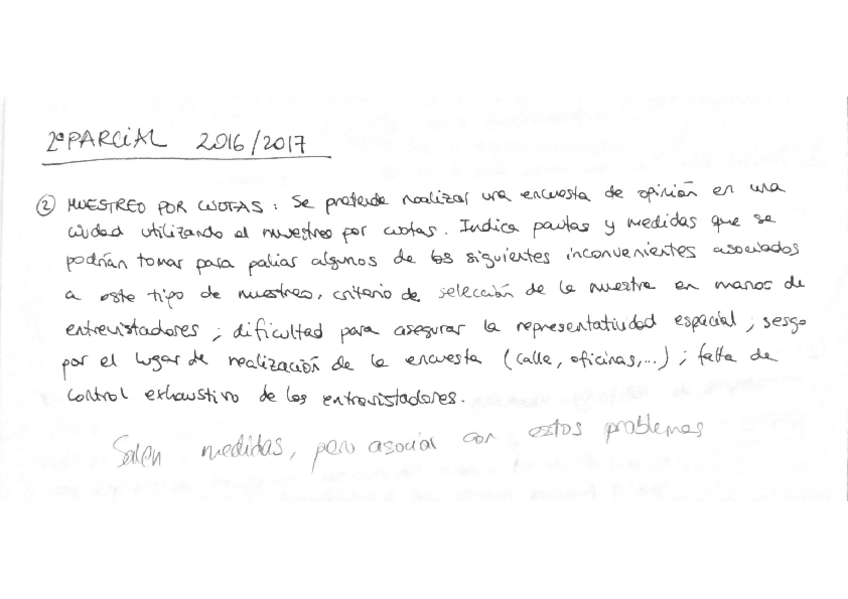 2º PARCIAL 2016/2017
② MUESTREO POR CUOTAS: Se pretende realizar una encuesta de opinión en una
ciudad utilizando el muestreo por cuotas. Indica pautas y medidas que se
podrían tomar para paliar algunos de los siguientes inconvenientes asociados
a este tipo de muestreo, criterio de selección de la muestra en manos de
entrevistadores; dificultad para asegurar la representatividad espacial; sesgo
por el lugar de realización de la encuesta (calle, oficinas,...); falta de
control exhaustivo de los entrevistadores.
Salen medidas, pero asociar con estos problemas